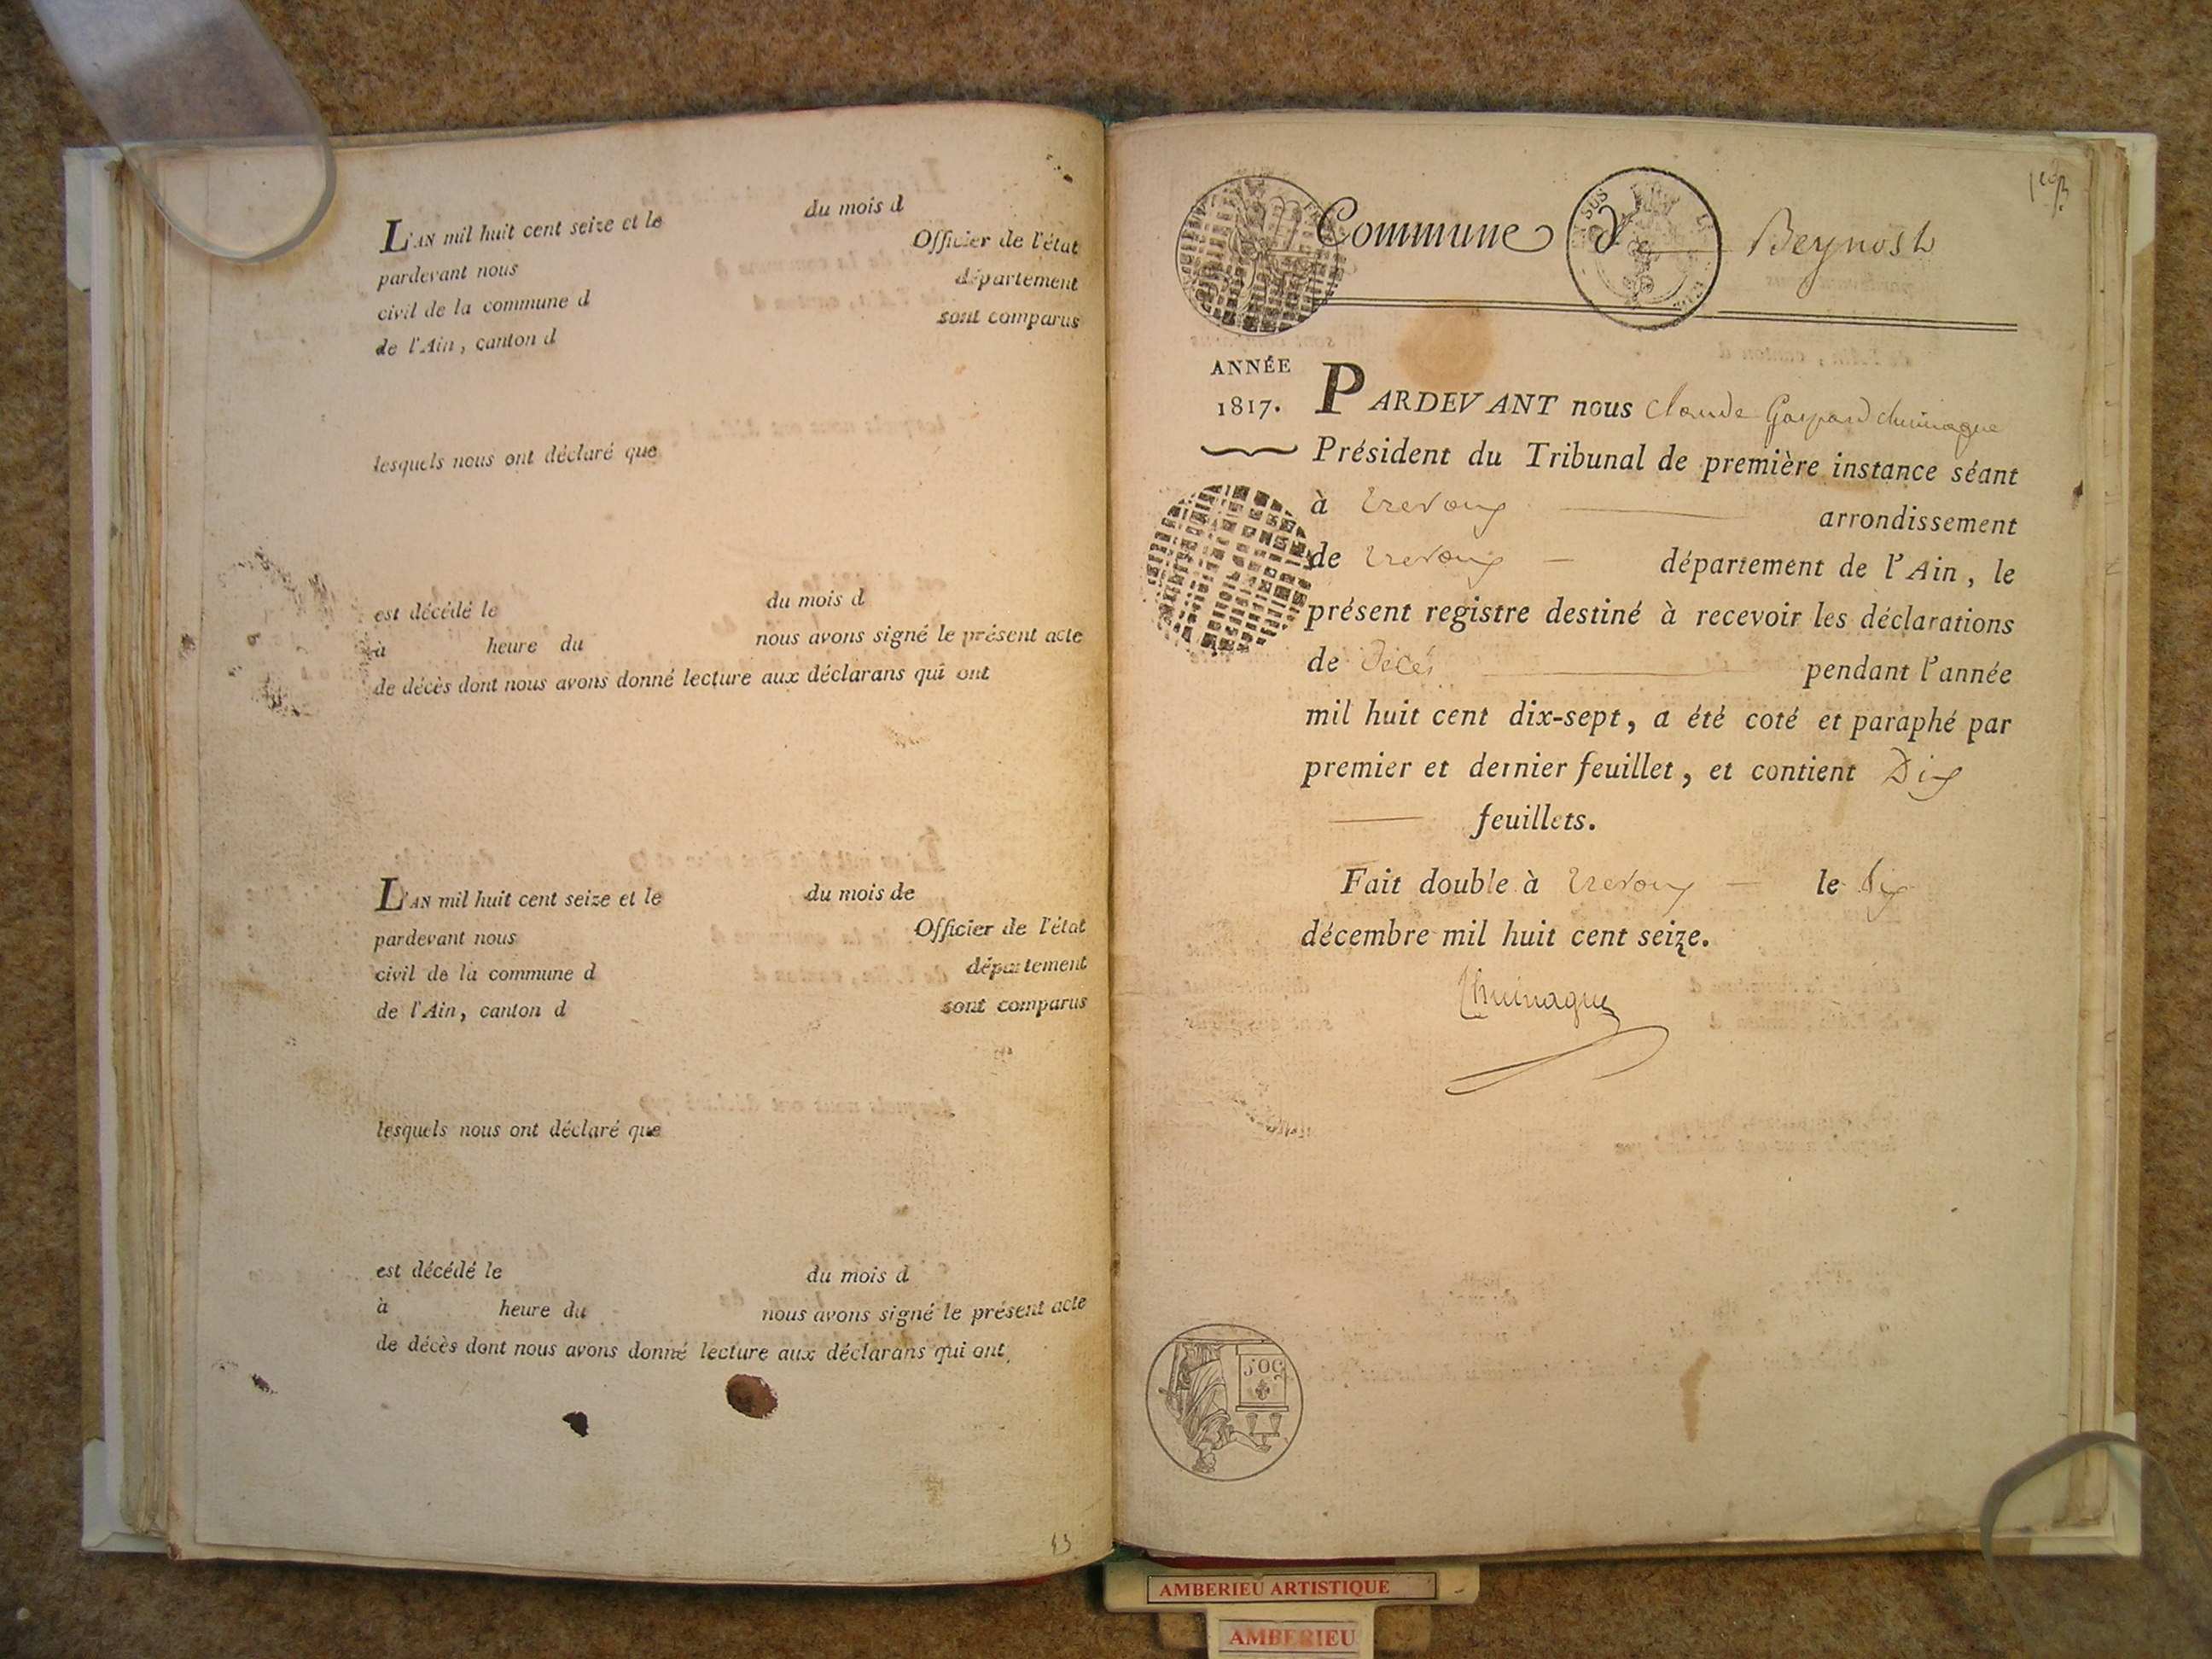 L'AN mil huit cent seize et le du mois d
pardevant nous Officier de l'état
civil de la commune d département
de l'Ain, canton d sont comparus
lesquels nous ont déclaré que
est décédé le du mois d
à heure du nous avons signé le présent acte
de décès dont nous avons donné lecture aux déclarans qui ont
L'AN mil huit cent seize et le du mois de
pardevant nous Officier de l'état
civil de la commune d département
de l'Ain, canton d sont comparus
lesquels nous ont déclaré que
est décédé le du mois d
à heure du nous avons signé le présent acte
de décès dont nous avons donné lecture aux déclarans qui ont
13
Commune de Beynost
ANNÉE
1817.
PARDEVANT nous Claude Gaspard
Président du Tribunal de première instance séant
à Trevoux arrondissement
de Trevoux département de l'Ain, le
présent registre destiné à recevoir les déclarations
de Décés pendant l'année
mil huit cent dix-sept, a été coté et paraphé par
premier et dernier feuillet, et contient Dix
feuillets.
Fait double à Trevoux le dix
décembre mil huit cent seize.
50 C
AMBERIEU ARTISTIQUE
AMBERIEU